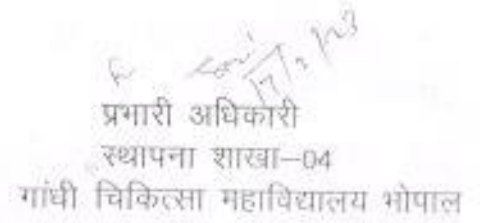 17/2/23
प्रभारी अधिकारी
स्थापना शाखा–04
गांधी चिकित्सा महाविद्यालय भोपाल